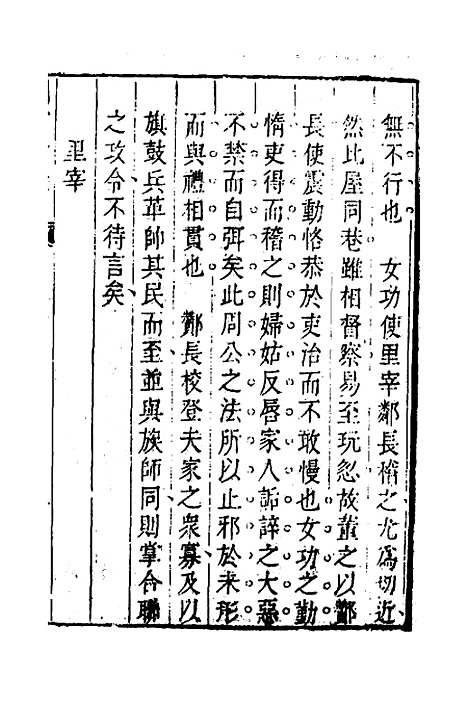 無不行也　女功使里宰鄰長稽之尤為切近
然比屋同巷雖相督察易至玩忽故董之以酇
長使震動恪恭於吏治而不敢慢也女功之勤
惰吏得而稽之則婦姑反唇家人詬誶之大惡
不禁而自弭矣此周公之法所以止邪於未形
而與禮相貫也　酇長校登夫家之衆寡及以
旗鼓兵革帥其民而至並與族師同則掌合聯
之政令不待言矣
里宰